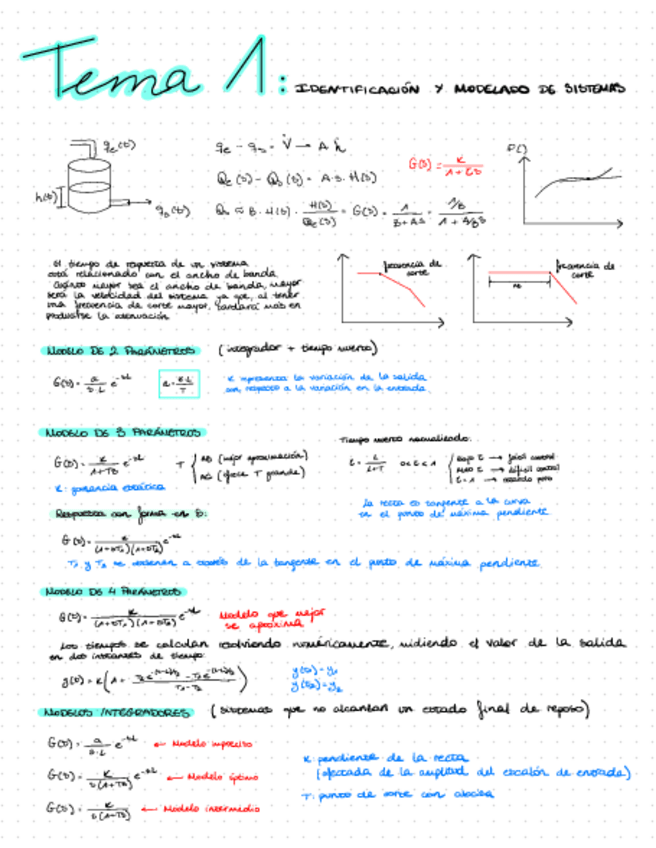 Tema 1: IDENTIFICACIÓN Y MODELADO DE SISTEMAS
qe(t)
h(t)
qs(t)
qe - qs = V̇ → A ḣ
Qe(s) - Qs(s) = A·s·H(s)
G(s) = K / 1+τs
P()
frecuencia de corte
frecuencia de corte
El tiempo de respuesta de un sistema
está relacionado con el ancho de banda.
Cuanto mayor sea el ancho de banda, mayor
será la velocidad del sistema ya que, al tener
una frecuencia de corte mayor, tardará más en
producirse la atenuación
MODELO DE 2 PARÁMETROS (integrador + tiempo muerto)
G(s) = a / s·L e^-sL
a = K·L / T
K representa la variación de la salida
con respecto a la variación en la entrada.
MODELO DE 3 PARÁMETROS
G(s) = K / 1+Ts e^-sL
T { AB (mejor aproximación)
AC (ofrece T grande)
K: ganancia estática
Tiempo muerto normalizado:
τ = L / L+T 0≤τ≤1
bajo τ → fácil control
alto τ → difícil control
τ=1 → retardo puro
La recta es tangente a la curva
en el punto de máxima pendiente
Respuesta con forma en S:
G(s) = K / (1+sT1)(1+sT2) e^-sL
se obtienen a través de la tangente en el punto de máxima pendiente.
MODELO DE 4 PARÁMETROS
G(s) = K / (1+sT1)(1+sT2) e^-sL
Modelo que mejor
se aproxima
Los tiempos se calculan resolviendo numéricamente, midiendo el valor de la salida
en dos instantes de tiempo:
y(t1) = y1
y(t2) = y2
MODELOS INTEGRADORES (sistemas que no alcanzan un estado final de reposo)
G(s) = a / s·L e^-sL ← Modelo impreciso
G(s) = K / s(1+Ts) e^-sL ← Modelo óptimo
G(s) = K / s(1+Ts) ← Modelo intermedio
K: pendiente de la recta
(afectada de la amplitud del escalón de entrada)
T: punto de corte con abscisa